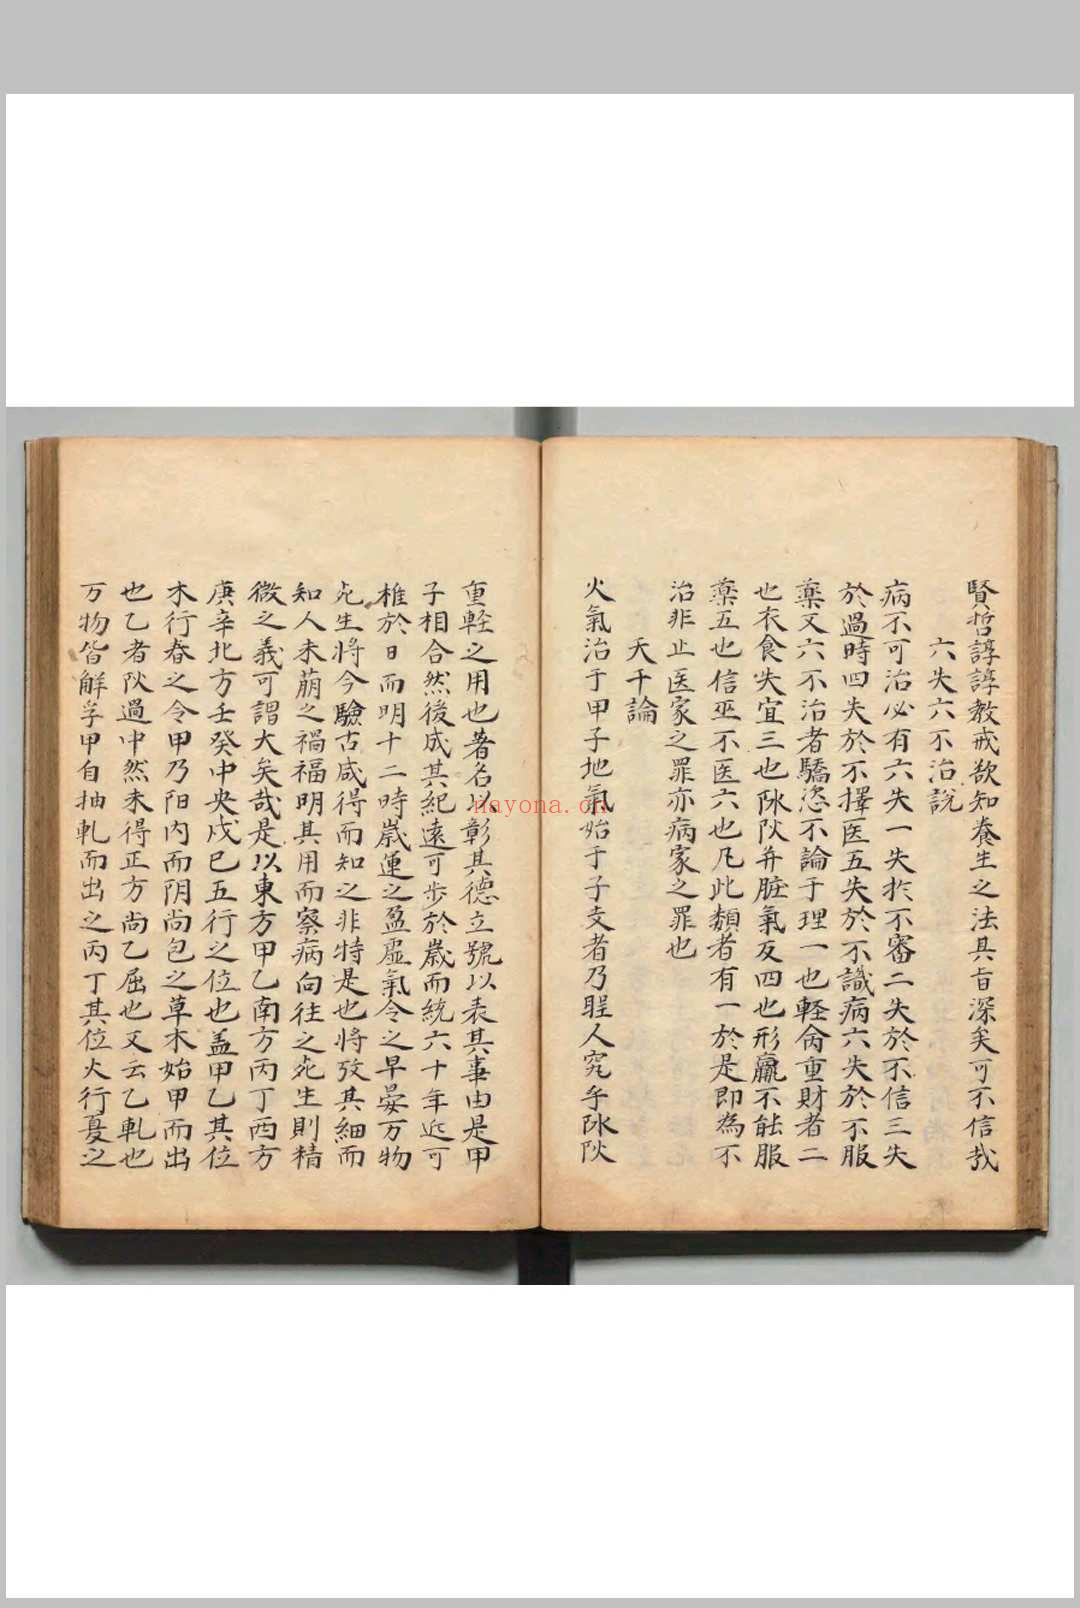 賢哲諄諄教戒欲知養生之法其旨深矣可不信哉
六失六不治說
病不可治必有六失一失於不審二失於不信三失
於過時四失於不擇医五失於不識病六失於不服
藥又六不治者驕恣不論于理一也軽命重財者二
也衣食失宜三也阴阳并脏氣反四也形羸不能服
藥五也信巫不医六也凡此類者有一於是即為不
治非止医家之罪亦病家之罪也
天干論
火氣治于甲子地氣始于子支者乃聖人究乎阴阳
重軽之用也著名以彰其德立號以表其事由是甲
子相合然後成其紀遠可步於歲而統六十年近可
推於日而明十二時歲運之盈虛氣令之早晏万物
死生將今驗古咸得而知之非特是也將攷其細而
知人未萠之禍福明其用而察病向往之死生則精
微之義可謂大矣哉是以東方甲乙南方丙丁西方
庚辛北方壬癸中央戊巳五行之位也盖甲乙其位
木行春之令甲乃阳内而阴尚包之草木始甲而出
也乙者阳過中然未得正方尚乙屈也又云乙軋也
万物皆解孚甲自抽軋而出之丙丁其位火行夏之
nayona.cn